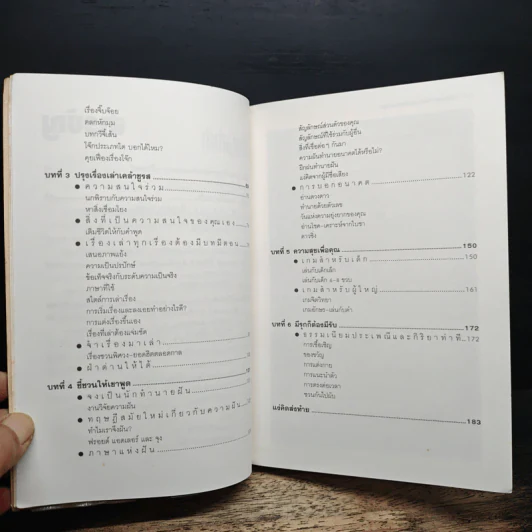 เรื่องจิ๊บจ๊อย
ตลกหักมุม
บทกวีจี้เส้น
โจ๊กประเภทใด บอกได้ไหม?
คุยเฟื่องเรื่องโจ๊ก
บทที่ 3 ปรุงเรื่องเล่าเคล้าชูรส
● ความสนใจร่วม
นกพิราบกับความสนใจร่วม
หาสิ่งเชื่อมโยง
● สิ่งที่เป็นความสนใจของคุณเอง
เติมชีวิตให้กับคำพูด
● เรื่องเล่าทุกเรื่องต้องมีบทมีตอน
เสนอภาพแย้ง
ความเป็นปรปักษ์
ข้อเท็จจริงกับระดับความเป็นจริง
ภาษาที่ใช้
สไตล์การเล่าเรื่อง
การเริ่มเรื่องและลงเอยทำอย่างไรดี?
การแต่งเรื่องขึ้นเอง
เรื่องที่เล่าต้องแจ่มชัด
● จำเรื่องมาเล่า
เรื่องชวนพิศวง-ยอดฮิตตลอดกาล
● ฝ่าด่านให้ได้
บทที่ 4 ชี้ชวนให้เขาพูด
● จงเป็นนักทำนายฝัน
งานวิจัยความฝัน
● ทฤษฎีสมัยใหม่เกี่ยวกับความฝัน
ทำไมเราจึงฝัน?
ฟรอยด์ แอดเลอร์ และ จุง
● ภาษาแห่งฝัน
สัญลักษณ์ส่วนตัวของคุณ
สัญลักษณ์ที่ใช้ร่วมกับผู้อื่น
สิ่งที่เชื่อต่อๆ กันมา
ความฝันทำนายอนาคตได้หรือไม่?
ฝึกฝนทำนายฝัน
แง่คิดจากผู้มีชื่อเสียง
● การบอกอนาคต 122
อ่านดวงดาว
ทำนายด้วยตัวเลข
วันแห่งความยุ่งยากของคุณ
อ่านโชค-เคราะห์จากใบชา
ดาวชิง
บทที่ 5 ความสุขเพื่อคุณ 150
● เกมสำหรับเด็ก 150
เล่นกับเด็กเล็ก
เล่นกับเด็ก ขวบ
● เกมสำหรับผู้ใหญ่ 161
เกมจิตวิทยา
เกมอักษร-เล่นกับคำ
บทที่ 6 มีรุกก็ต้องมีรับ 172
● ธรรมเนียมประเพณีและกิริยาท่าที 172
การเชื้อเชิญ
ของขวัญ
การแต่งกาย
การแนะนำตัว
การตรงต่อเวลา
ชวนกันไปนับ
แง่คิดส่งท้าย 193